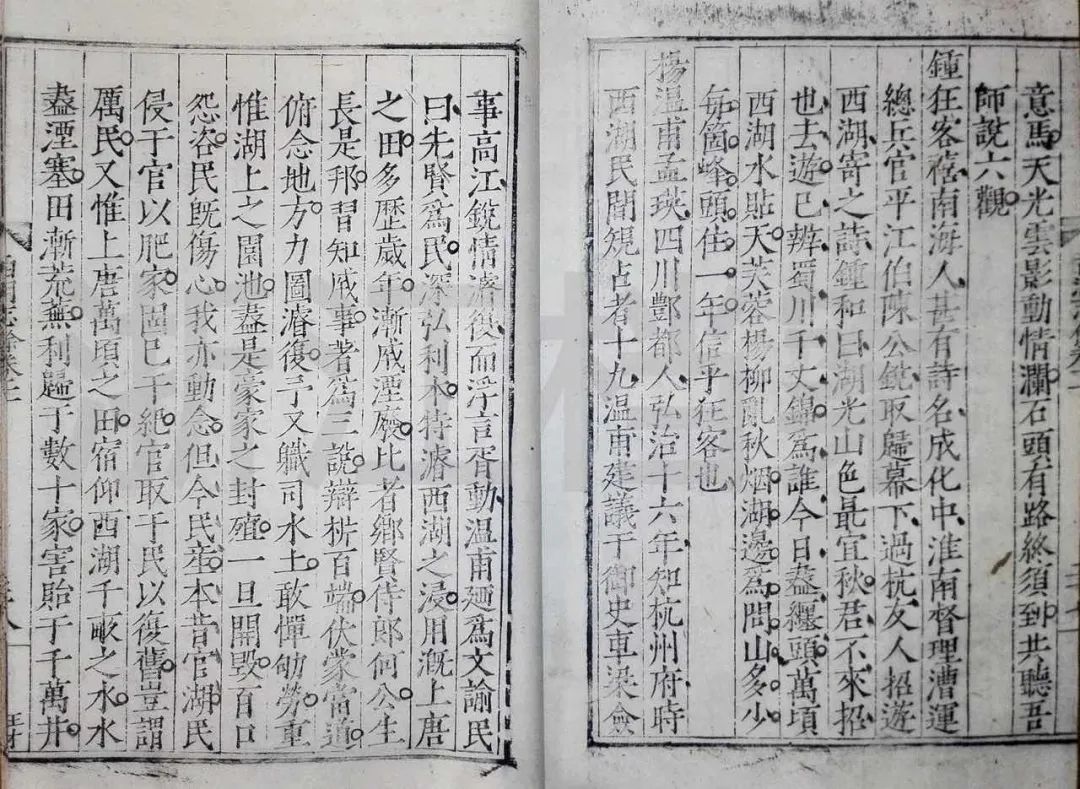 意馬天光雲影動情瀾石頭有路終須到共聽吾
師說六觀
鍾狂客禧南海人甚有詩名成化中淮南督理漕運
總兵官平江伯陳公銳取歸幕下過杭友人招遊
西湖寄之詩鍾和曰湖光山色最宜秋君不來招
也去遊已辨蜀川千丈錦爲誰今日盡纏頭萬頃
西湖水貼天芙蓉楊柳亂秋烟湖邊爲問山多少
每箇峰頭住一年信乎狂客也
楊溫甫孟瑛四川酆都人弘治十六年知杭州府時
西湖民間規占者十九溫甫建議于御史車梁僉
事高江銳情濬復而浮言胥動溫甫廼爲文諭民
曰先賢爲民深弘利本特濬西湖之浸用溉上唐
之田多歷歲年漸戚湮廢比者鄉賢侍郎何公生
長是邦習知戚事著爲三說辯析百端伏蒙當道
俯念地方力圖濬復予又職司水土敢憚劬勞重
惟湖上之園池盡是豪家之封殖一旦開毀百口
怨咨民旣傷心我亦動念但今民產本昔官湖民
侵于官以肥家固已干紀官取于民以復舊豈謂
厲民又惟上唐萬頃之田宿仰西湖千畝之水水
盡湮塞田漸荒蕪利歸于數十家害貽于千萬井